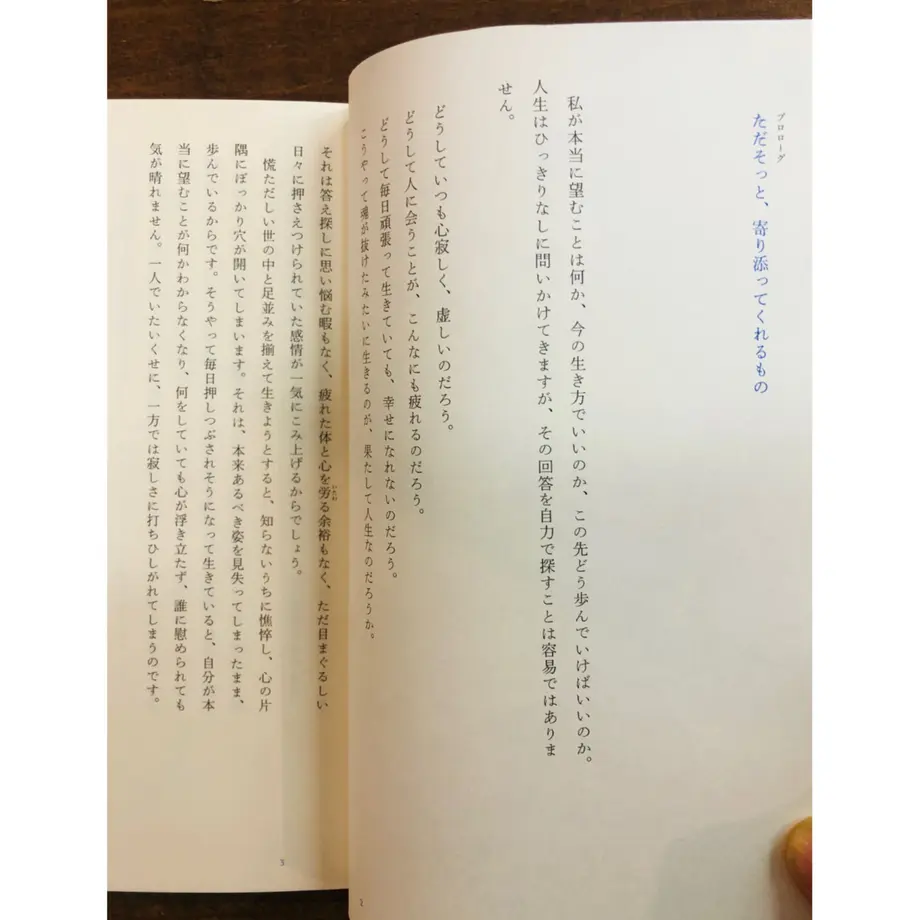 プロローグ
ただそっと、寄り添ってくれるもの
私が本当に望むことは何か、今の生き方でいいのか、この先どう歩んでいけばいいのか。
人生はひっきりなしに問いかけてきますが、その回答を自力で探すことは容易ではありま
せん。
どうしていつも心寂しく、虚しいのだろう。
どうして人に会うことが、こんなにも疲れるのだろう。
どうして毎日頑張って生きていても、幸せになれないのだろう。
こうやって魂が抜けたみたいに生きるのが、果たして人生なのだろうか。
2
それは答え探しに思い悩む暇もなく、疲れた体と心を労る余裕もなく、ただ目まぐるしい
いたわ
日々に押さえつけられていた感情が一気にこみ上げるからでしょう。
慌ただしい世の中と足並みを揃えて生きようとすると、知らないうちに憔悴し、心の片
隅にぽっかり穴が開いてしまいます。それは、本来あるべき姿を見失ってしまったまま、
歩んでいるからです。そうやって毎日押しつぶされそうになって生きていると、自分が本
当に望むことが何かわからなくなり、何をしていても心が浮き立たず、誰に慰められても
気が晴れません。一人でいたいくせに、一方では寂しさに打ちひしがれてしまうのです。
3